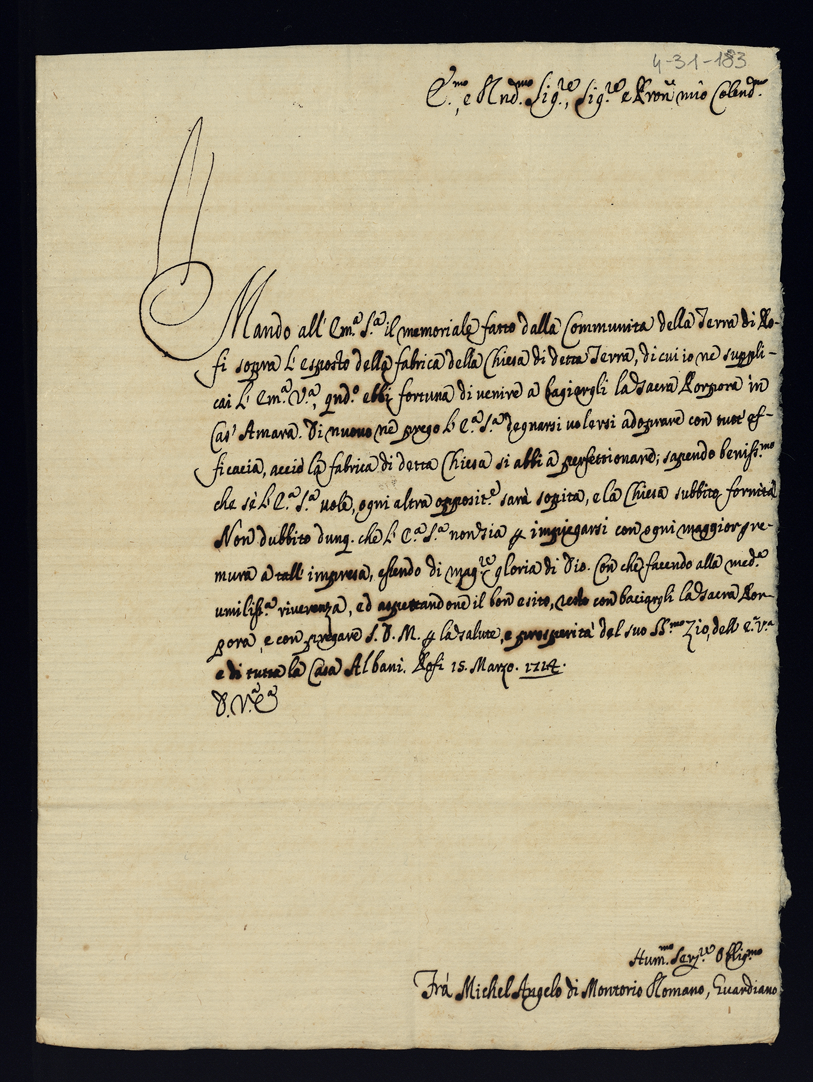 4-31-183
E.mo, e Rnd.mo Sig.re, Sig.re e Pron.e mio Colend.mo
Mando all' Em.a S.a il memoriale fatto dalla Communita della Terra di Ro-
fi sopra l' esposto della fabrica della Chiesa di detta Terra, di cui io ne suppli-
cai l' Em.a V.a, qnd.o ebbi fortuna di venire a bagiargli la Sacra Porpora in
Cas' Amara. Di nuovo ne prego l' E.a S.a degnarsi volersi adoprare con tutt' ef-
ficacia, acciò la fabrica di detta Chiesa si abbi a perfettionare; sapendo beniss.mo
che sè l' E.a S.a vole, ogni altra opposit.e sarà sopita, e la Chiesa subbito fornita
Non dubbito dunq. che l' E.a S.a non sia p impiegarsi con ogni maggior pre-
mura a tall' impresa, essendo di mag.re gloria di Dio. Con che facendo alla med.a
umiliss.a riverenza, ed aspettandone il bon esito, resto con baciargli la Sacra Por-
pora, e con pregare S. D. M. p la salute, e prosperità del suo SS.mo Zio, dell' E.a V.a
e di tutta la Casa Albani. Rofi 15. Marzo. 1714.
D. V.a E.a
Hum.mo Serv.re Oblig.mo
Frà Michel Angelo di Montorio Romano, Guardiano